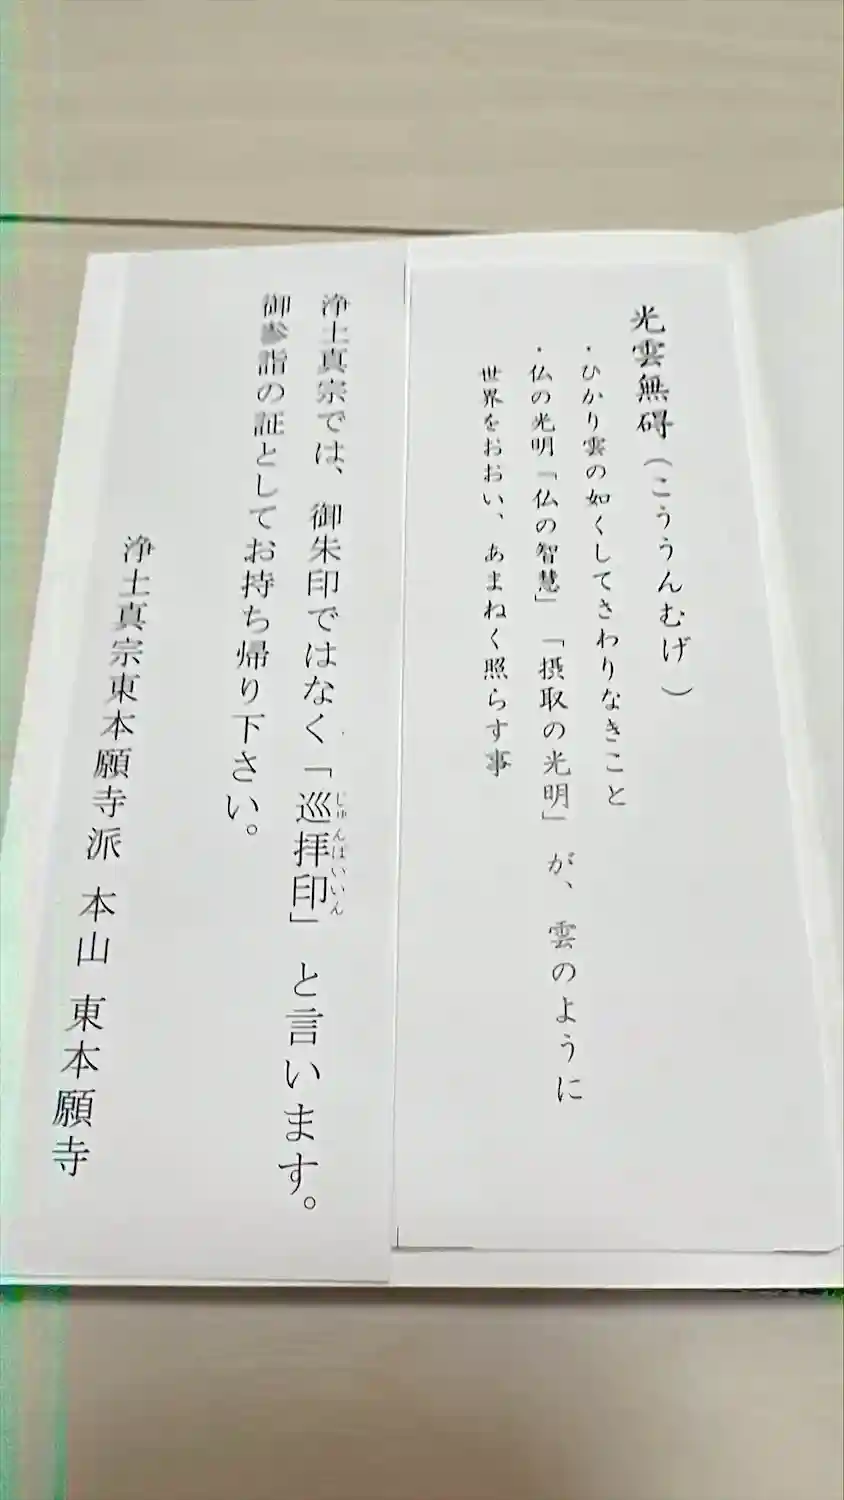 光雲無碍（こううんむげ）
・ひかり雲の如くしてさわりなきこと
・仏の光明「仏の智慧」「摂取の光明」が、雲のように
世界をおおい、あまねく照らす事
浄土真宗では、御朱印ではなく「巡拝印」と言います。
じゅんはいいん
御参詣の証としてお持ち帰り下さい。
浄土真宗東本願寺派 本山 東本願寺